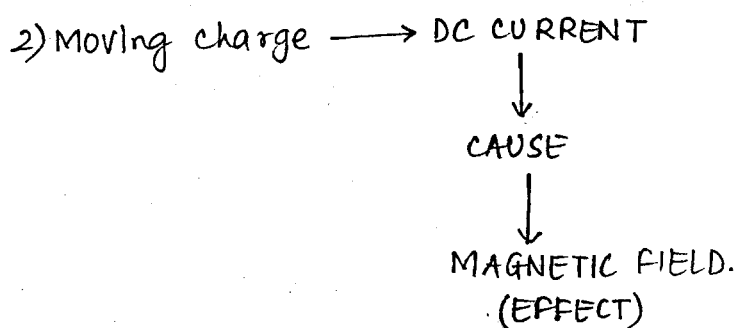 2) Moving charge → DC CURRENT
↓
CAUSE
↓
MAGNETIC FIELD.
(EFFECT)